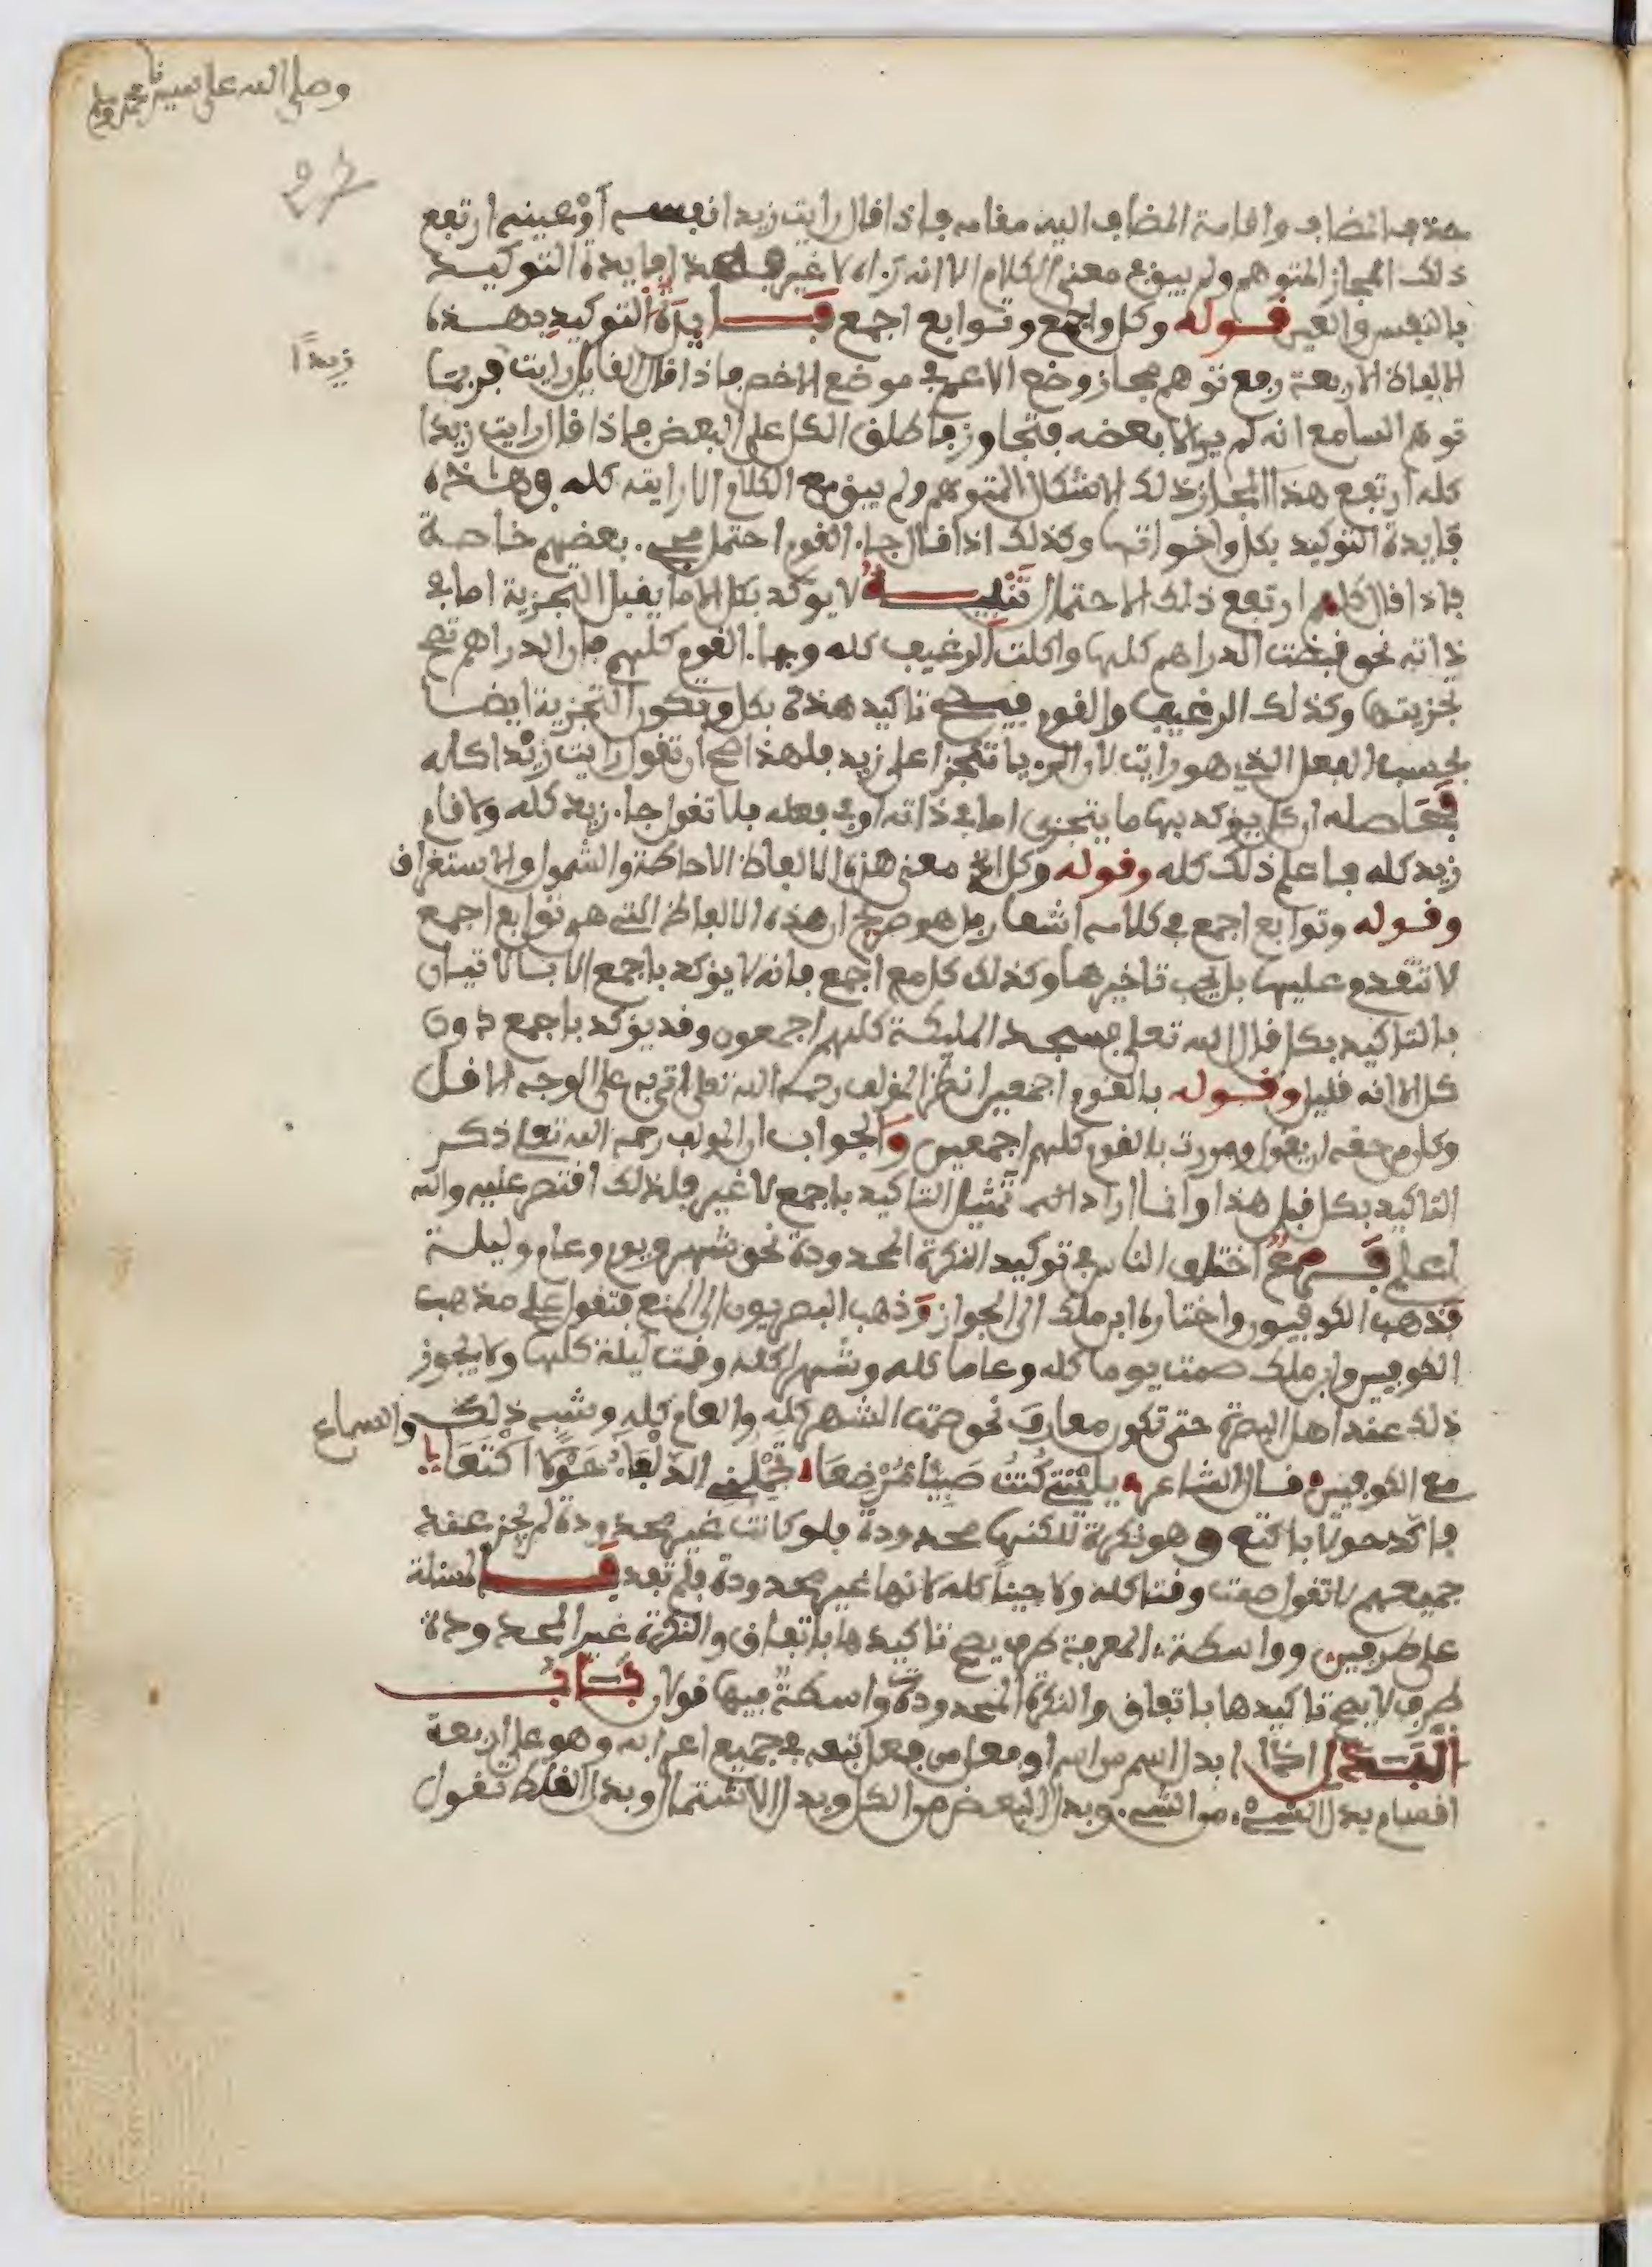 وصلى الله على سيدنا محمد وسلم
27
حذف المضاف واقامة المضاف اليه مقامه فاذا قال رايت زيدا نفسه أو عينه ارتفع
ذلك المجاز المتوهم ولم يبق في معنى الكلام الا انه رءاه لا غير فهذه فايدة التوكيد
بالنفس والعين قوله وكل واجمع وتوابع اجمع فايدة التوكيد بهذه
زيدًا
الالفاظ الاربعة رفع توهم مجاز وضع الاعم في موضع الاخص فاذا قال القايل رايت
توهم السامع انه لم ير الا بعضه فتجاوز فاطلق الكل على البعض فاذا قال رايت زيدا
كله ارتفع هذا المجاز ذلك الاشكال المتوهم ولم يبق مع الكلام الا رايته كله وهذه
فايدة التوكيد بكل واخواتها وكذلك اذا قال جاء القوم احتمل مجيء بعضهم خاصة
فاذا قال كلهم ارتفع ذلك الاحتمال تنبيه لا يوكد بكل الا ما يقبل التجزية اما في
ذاته نحو قبضت الدراهم كلها واكلت الرغيف كله وجاء القوم كلهم فان الدراهم تصح
تجزيتها وكذلك الرغيف والقوم فيصح تاكيد هذه بكل وتكون التجزية ايضا
بحسب الفعل الذي هو رايت لان الرءيا تتجزا على زيد فلهذا صح ان تقول رايت زيْدا كله
فحاصله ان كل يوكد بها ما يتجزى اما في ذاته او في فعله فلا تقول جاء زيد كله ولا قام
زيد كله فاعلم ذلك كله وقوله وكل الخ معنى هذه الالفاظ الاحاطة والشمول والاستغراق
وقوله وتوابع اجمع في كلامه اشعار بما هو صحيح ان هذه الالفاظ التي هي توابع اجمع
لا تتقدم عليها بل يجب تاخيرها وكذلك كل مع اجمع فانه لا يؤكد باجمع الا بالاتيان
بالتاكيد بكل قال الله تعلى فسجد المليكة كلهم اجمعون وقد يؤكد باجمع دون
كل الا انه قليل وقوله بالقوم اجمعين انظر المولف رحمه الله تعلى اتى به على الوجه الاقل
وكان من حقه ان يقول ومررت بالقوم كلهم اجمعين والجواب ان المولف رحمه الله تعلى ذكر
التاكيد بكل قبل هذا وانما اراد تمثيل التاكيد باجمع لا غير فلذلك اقتصر عليه والله
اعلم فرع اختلف الناس في توكيد النكرة المحدودة نحو شهر ويوم وعام وليلة
فذهب الكوفيون واختاره ابن ملك الى الجواز وذهب البصريون الى المنع فتقول على مذهب
الكوفيين وابن ملك صمت يوما كله وعاما كله وشهرا كله وقمت ليلة كلها ولا يجوز
ذلك عند اهل البصرة حتى تكون معارف نحو صمت الشهر كله والعام كله وشبه ذلك والسماع
مع الكوفيين قال الشاعر يليتني كُنتُ صَبِيًّا مُرْضَعَا تَحْمِلُني الذَّلْفَاءُ حَوْلا أكْتَعَا
فاكد حولا باكتع وهو نكرة لكنها محدودة فلو كانت غير محدودة لم يجز عند
جميعهم لا تقول صمت وقتا كله ولا حينًا كله لانها غير محدودة فلم تفد فالمسئلة
على طرفين وواسطة المعرفة طرف يصح تاكيدها باتفاق والنكرة غير المحدودة
طرف لا يصح تاكيدها باتفاق والنكرة المحدودة واسطة فيها قولان بَاب
البَدَلِ اذا ابدل اسم من اسم او فعل من فعل تبعه في جميع اعرابه وهو على اربعة
اقسام بدل الشيء من الشيء وبدل البعض من الكل وبدل الاشتمال وبدل الغلط تقول